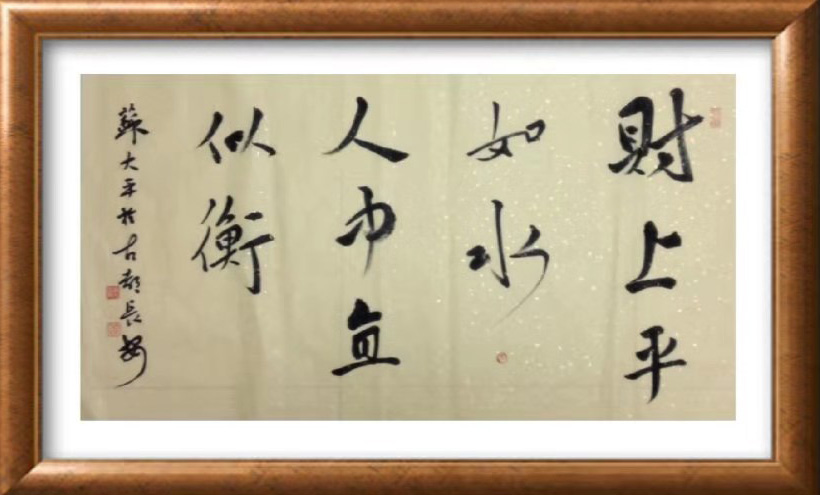 財上平
如水
人中直
似衡
蘇大平於古都長安